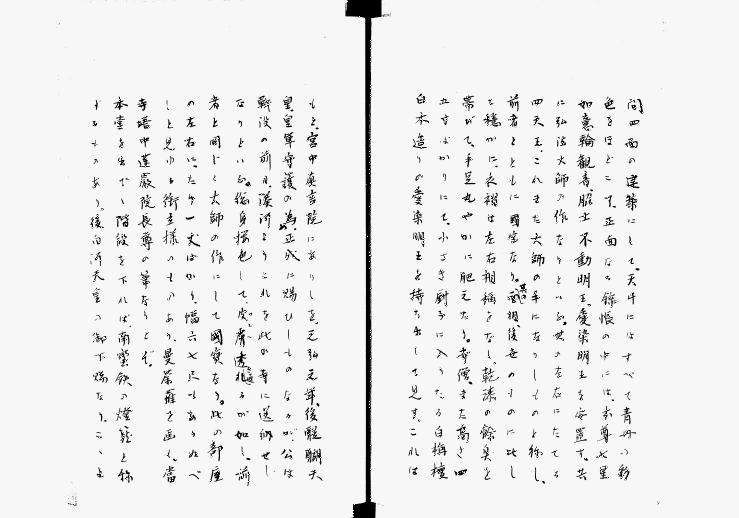 間四面の建築にして、天井にはすべて青丹の彩
色をほどこす。正面なる錦帳の中には、本尊七星
如意輪観音、脇士不動明王、愛染明王を安置す。共
に弘法大師の作なりといふ。其の左右にたてる
四天王、これまた大師の手になりしものと称し、
前者とともに國宝なり。其の面相、後世のものに比し
て穏かに、衣褶は左右相称をなし、乾漆の餘臭を
帯びて、手足丸やかに肥えたり。寺僧、また高さ四
五寸ばかりにて、小さき厨子に入りたる白梅檀
白木造りの愛染明王を持ち出して見す。これは
もと、宮中真言院にありしを、元弘元年、後醍醐天
皇、皇軍守護の為、正成に賜ひしものなるが、公は
戦没の前月、湊河よりこれを此の寺に送納せし
なりといふ。総身極色して、皮膚透徹るが如し。前
者と同じく大師の作にして國寶なり。此の部屋
の左右に、たけ一丈ばかり、幅六七尺もありぬべ
しと見ゆる衝立様のものあり、曼荼羅を画く。當
寺塔中蓮蔵院長尊の筆なりとぞ。
本堂を出でゝ階段を下れば、南蛮鉄の燈籠と称
するものあり。後白河天皇の御下賜なり。こゝを